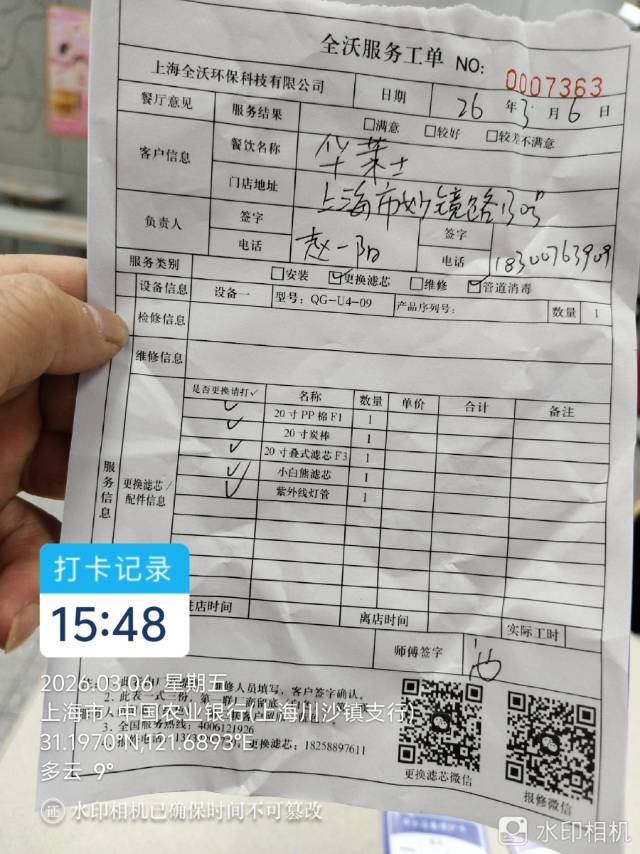 全沃服务工单 NO: 0007363
上海全沃环保科技有限公司 日期 26 年 3 月 6 日
餐厅意见 服务结果 □满意 □较好 □较差不满意
客户信息 餐饮名称 华莱士
门店地址 上海市妙镜路
负责人 签字 赵一阳 签字
电话 电话 18300763909
服务类别 □安装 ☑更换滤芯 □维修 ☑管道消毒
服务信息
设备信息 设备一 型号: QG-U4-09 产品序列号: 数量 1
检修信息
维修信息
更换滤芯/配件信息
是否更换请打✓ 名称 数量 单价 合计 备注
✓ 20寸PP棉F1 1
✓ 20寸炭棒 1
✓ 20寸叠式滤芯F3 1
✓ 小白熊滤芯 1
✓ 紫外线灯管 1
进店时间 离店时间 实际工时
师傅签字
维修人员填写，客户签字确认。
2、此表一式三份，第一联
3、全国服务热线: 4006121926
更换滤芯: 18258897611
更换滤芯微信 报修微信
打卡记录
15:48
2026.03.06 星期五
上海市·中国农业银行(上海川沙镇支行)
31.1970°N,121.6893°E
多云 9°
证 水印相机已确保时间不可篡改
水印相机